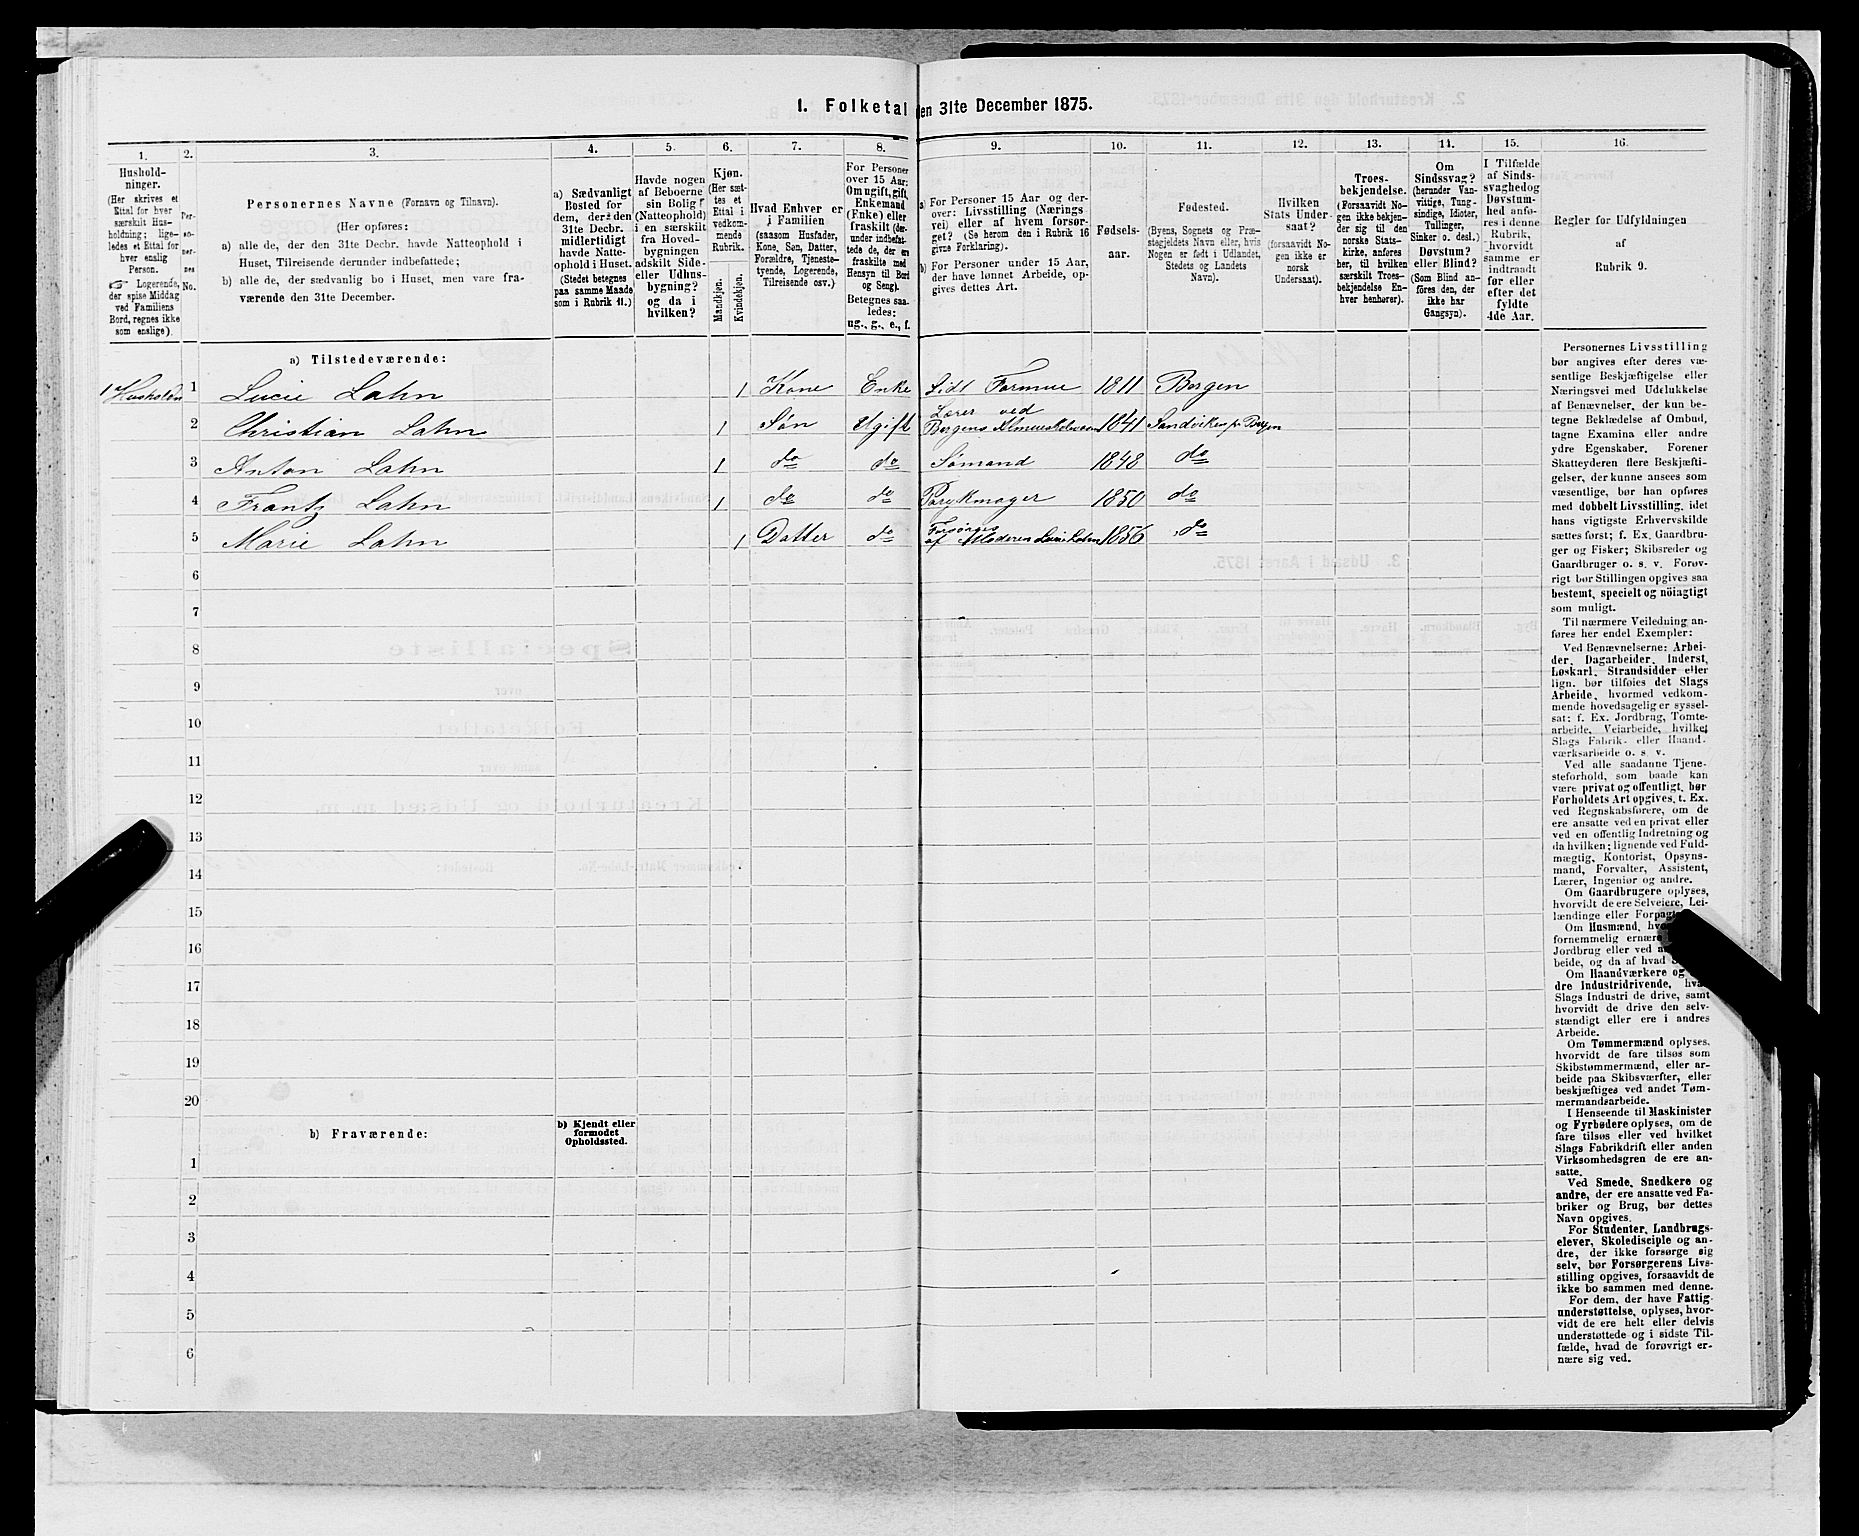 1. Folketal den 31te December 1875.
1.
Hushold-
ninger.
(Her skrives et
Ettal for hver
særskilt Hus-
holdning; lige-
ledes et Ettal for
hver enslig
Person.
☞ Logerende,
der spise Middag
ved Familiens
Bord, regnes ikke
som enslige).
2.
Per-
so-
ner-
nes
No.
3.
Personernes Navne (Fornavn og Tilnavn).
(Her opføres:
a) alle de, der den 31te Decbr. havde Natteophold i
Huset, Tilreisende derunder indbefattede;
b) alle de, der sædvanlig bo i Huset, men vare fra-
værende den 31te December.
4.
a) Sædvanligt
Bosted for
dem, der den
31te Decbr.
midlertidigt
havde Natte-
ophold i Huset.
(Stedet betegnes
paa samme Maade
som i Rubrik 11.)
5.
Havde nogen
af Beboerne
sin Bolig
(Natteophold)
i en særskilt
fra Hoved-
bygningen
adskilt Side-
eller Udhus-
bygning?
og da i
hvilken?
6.
Kjøn.
(Her sæt-
tes et
Ettal i
vedkom-
mende
Rubrik.
Mandkjøn.
Kvindekjøn.
7.
Hvad Enhver er
i Familien
(saasom Husfader,
Kone, Søn, Datter,
Forældre, Tjeneste-
tyende, Logerende,
Tilreisende osv.)
8.
For Personer
over 15 Aar:
Om ugift, gift,
Enkemand
(Enke) eller
fraskilt (der-
under indbefat-
tede de, der ere
fraskilte med
Hensyn til Bord
og Seng).
Betegnes saa-
ledes:
ug., g., e., f.
9.
a) For Personer 15 Aar og der-
over: Livsstilling (Nærings-
vei) eller af hvem forsør-
get? (Se herom den i Rubrik 16
givne Forklaring).
b) For Personer under 15 Aar,
der have lønnet Arbeide, op-
gives dettes Art.
10.
Fødsels-
aar.
11.
Fødested.
(Byens, Sognets og Præ-
stegjeldets Navn eller, hvis
Nogen er født i Udlandet,
Stedets og Landets
Navn).
12.
Hvilken
Stats Under-
saat?
(forsaavidt No-
gen ikke er
norsk
Undersaat).
13.
Troes-
bekjendelse.
(Forsaavidt No-
gen ikke bekjen-
der sig til den
norske Stats-
kirke, anføres
her, til hvilken
særskilt Troes-
bekjendelse En-
hver henhører).
14.
Om
Sindssvag?
(herunder Van-
vittige, Tung-
sindige, Idioter,
Tullinger,
Sinker o. desl.)
Døvstum?
eller Blind?
(Som Blind an-
føres den, der
ikke har
Gangsyn).
15.
I Tilfælde
af Sinds-
svaghed og
Døvstum-
hed anfø-
res i denne
Rubrik,
hvorvidt
samme er
indtraadt
før eller
efter det
fyldte
4de Aar.
16.
Regler for Udfyldningen
af
Rubrik 9.
a) Tilstedeværende:
1 Husholdn 1 Lucie Lahn 1 Kone Enke Lidt Formue 1811 Bergen
2 Christian Lahn 1 Søn Ugift Lærer ved
Bergens Almueskolevæsen 1841 Sandviken pr Bergen
3 Anton Lahn 1 do do Sømand 1848 do
4 Frantz Lahn 1 do do Parykmager 1850 do
5 Marie Lahn 1 Datter do Forsørges
af Moderen Lucie Lahn 1856 do
6
7
8
9
10
11
12
13
14
15
16
17
18
19
20
b) Fraværende:
b) Kjendt eller
formodet
Opholdssted.
1
2
3
4
5
6
Personernes Livsstilling
bør angives efter deres væ-
sentlige Beskjæftigelse eller
Næringsvei med Udelukkelse
af Benævnelser, der kun be-
tegne Beklædelse af Ombud,
tagne Examina eller andre
ydre Egenskaber. Forener
Skatteyderen flere Beskjæfti-
gelser, der kunne ansees som
væsentlige, bør han opføres
med dobbelt Livsstilling, idet
hans vigtigste Erhvervskilde
sættes først; f. Ex. Gaardbru-
ger og Fisker; Skibsreder og
Gaardbruger o. s. v. Forøv-
rigt bør Stillingen opgives saa
bestemt, specielt og nöiagtigt
som muligt.
Til nærmere Veiledning an-
føres her endel Exempler:
Ved Benævnelserne: Arbei-
der, Dagarbeider, Inderst,
Løskarl, Strandsidder eller
lign. bør tilføies det Slags
Arbeide, hvormed vedkom-
mende hovedsagelig er syssel-
sat: f. Ex. Jordbrug, Tomte-
arbeide, Veiarbeide, hvilket
Slags Fabrik- eller Haand-
værksarbeide o. s. v.
Ved alle saadanne Tjene-
steforhold, som baade kan
være privat og offentligt, bør
Forholdets Art opgives, t. Ex.
ved Regnskabsførere, om de
ere ansatte ved en privat eller
ved en offentlig Indretning og
da hvilken; lignende ved Fuld-
mægtig, Kontorist, Opsyns-
mand, Forvalter, Assistent,
Lærer, Ingeniør og andre.
Om Gaardbrugere oplyses,
hvorvidt de ere Selveiere, Lei-
lændinge eller
Om Husmænd,
fornemmelig
Jordbrug eller ved
beide, og da af hvad
Om Haandværkere og
dre Industridrivende,
Slags Industri de drive, samt
hvorvidt de drive den selv-
stændigt eller ere i andres
Arbeide.
Om Tømmermænd oplyses,
hvorvidt de fare tilsøs som
Skibstømmermænd, eller ar-
beide paa Skibsværfter, eller
beskjæftiges ved andet Tøm-
mermandsarbeide.
I Henseende til Maskinister
og Fyrbødere oplyses, om de
fare tilsøs eller ved hvilket
Slags Fabrikdrift eller anden
Virksomhedsgren de ere an-
satte.
Ved Smede, Snedkere og
andre, der ere ansatte ved Fa-
briker og Brug, bør dettes
Navn opgives.
For Studenter, Landbrugs-
elever, Skoledisciple og an-
dre, der ikke forsørge sig
selv, bør Forsørgerens Livs-
stilling opgives, forsaavidt de
ikke bo sammen med denne.
For dem, der have Fattig-
understøttelse, oplyses, hvor-
vidt de ere helt eller delvis
understøttede og i sidste Til-
fælde, hvad de forøvrigt er-
nære sig ved.